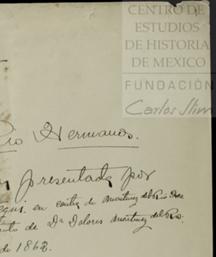 CENTRO DE
ESTUDIOS
DE HISTORIA
DE MEXICO
FUNDACIÓN
Carlos Slim
Rio Hermanos.
presentada por
en carta de Martinez del Rio
de Dª Dolores Martinez del Rio.
de 1868.